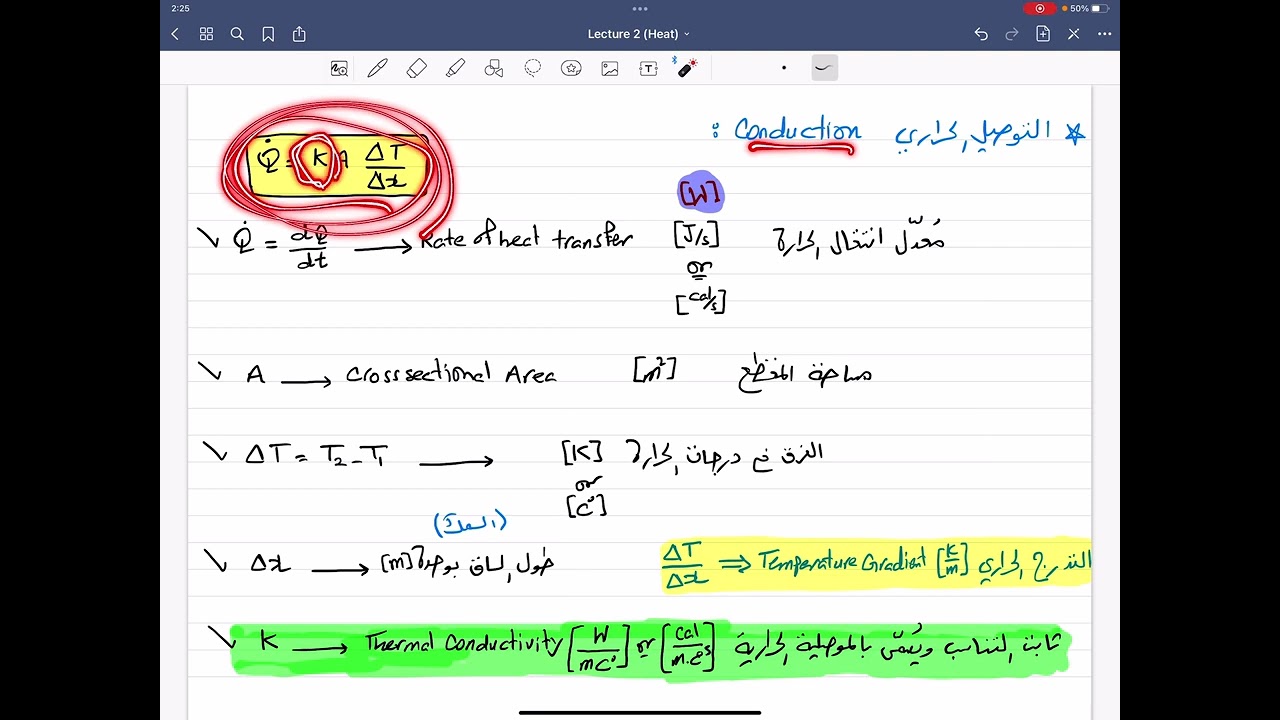 2:25
50%
Lecture 2 (Heat)
★ التوصيل الحراري Conduction :
Q̇ = K A ΔT/Δx
[W]
Q̇ = dQ/dt → Rate of heat transfer [J/s] or [cal/s] مُعدّل انتقال الحرارة
A → Crosssectional Area [m²] مساحة المقطع
ΔT = T₂ - T₁ → [K] or [C°] الفرق في درجات الحرارة
(السمك)
Δx → طول الساق بوحدة [m]
ΔT/Δx ⇒ Temperature Gradient [K/m] التدرج الحراري
K → Thermal Conductivity [W/mC°] or [cal/m.C°s] ثابت التناسب ويُسمّى بالموصلية الحرارية